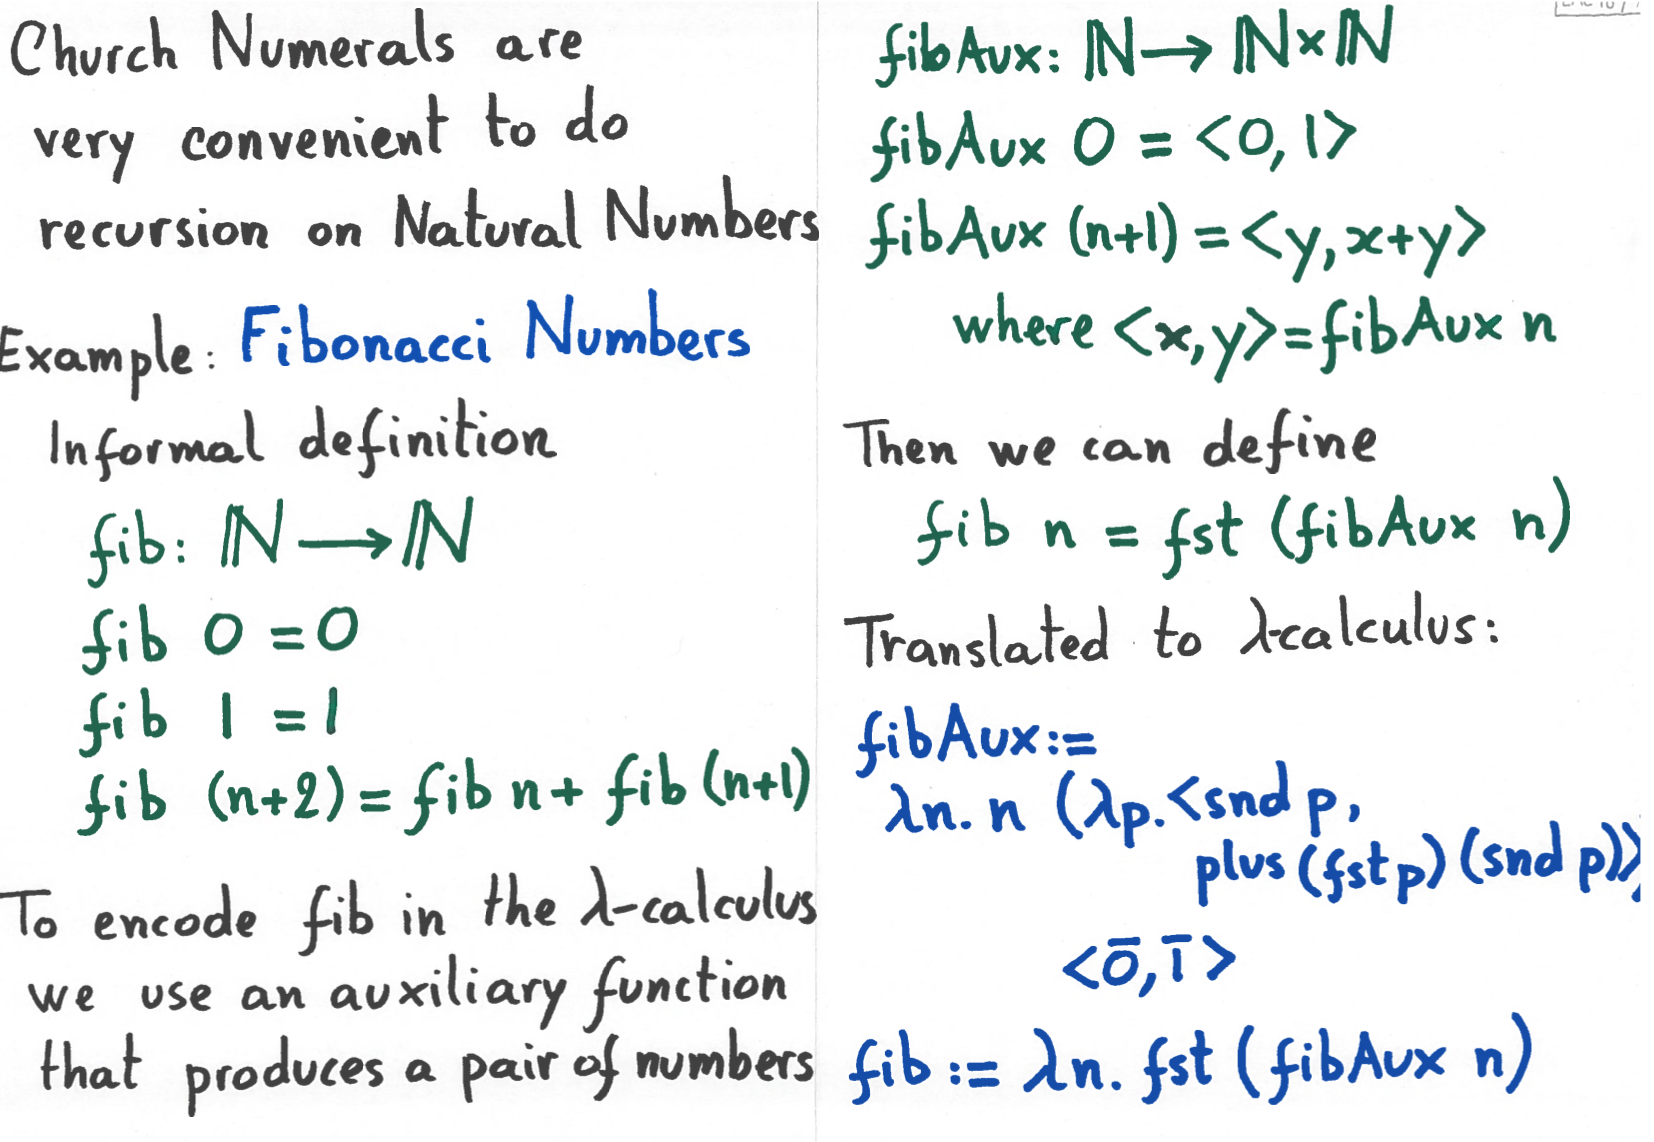 Church Numerals are
very convenient to do
recursion on Natural Numbers
Example: Fibonacci Numbers
Informal definition
fib: ℕ ⟶ ℕ
fib 0 = 0
fib 1 = 1
fib (n+2) = fib n + fib (n+1)
To encode fib in the λ-calculus
we use an auxiliary function
that produces a pair of numbers
fibAux: ℕ ⟶ ℕ×ℕ
fibAux 0 = <0, 1>
fibAux (n+1) = <y, x+y>
where <x, y> = fibAux n
Then we can define
fib n = fst (fibAux n)
Translated to λ-calculus:
fibAux :=
λn. n (λp. <snd p,
plus (fst p) (snd p)>)
<0̅, 1̅>
fib := λn. fst (fibAux n)